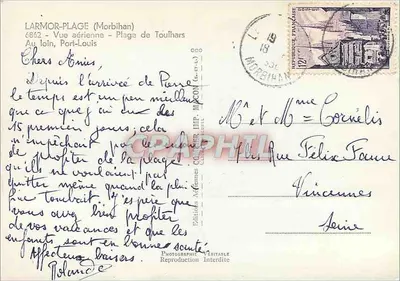 LARMOR-PLAGE (Morbihan)
6862 - Vue aérienne - Plage de Toulhars
Au loin, Port-Louis
Chers Amis,
Depuis l'arrivée de Pierre
le temps est un peu meilleur
que ce que j'ai eu les
15 premiers jours; cela
n'empêchant pas les enfants
de profiter de la plage
qu'ils ne voulaient pas
quitter même quand la pluie
fine tombait. J'espère que
vous avez bien profiter
de vos vacances et que les
enfants sont en bonne santé.
Affectueux baisers.
Rolande
19
18
MORBIHAN
12F
Mr et Mme Cornélis
Rue Félix Faure
Vincennes
Seine
PHOTOGRAPHIE VÉRITABLE
Reproduction Interdite
CPAPHIL